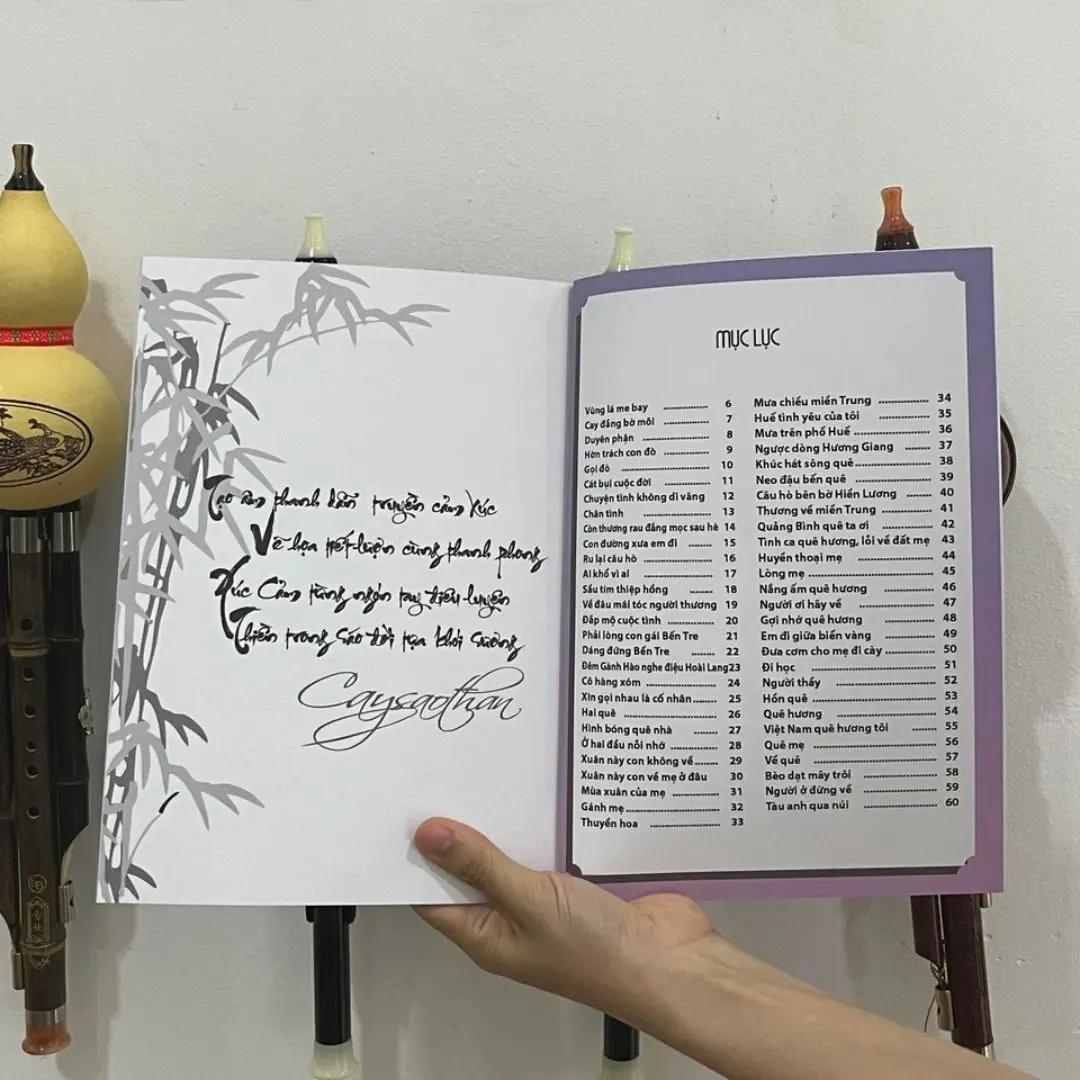 Tạo âm thanh dẫn truyền cảm xúc
Vẽ họa tiết lượn cùng thanh phong
Xúc Cảm từng ngón tay điêu luyện
Thiền trong sáo đời tựa khói sương
Caysaothan
MỤC LỤC
Vùng lá me bay 6
Cay đắng bờ môi 7
Duyên phận 8
Hờn trách con đò 9
Gọi đò 10
Cát bụi cuộc đời 11
Chuyện tình không dĩ vãng 12
Chân tình 13
Còn thương rau đắng mọc sau hè 14
Con đường xưa em đi 15
Ru lại câu hò 16
Ai khổ vì ai 17
Sầu tím thiệp hồng 18
Về đâu mái tóc người thương 19
Đắp mộ cuộc tình 20
Phải lòng con gái Bến Tre 21
Dáng đứng Bến Tre 22
Đêm Gành Hào nghe điệu Hoài Lang 23
Cô hàng xóm 24
Xin gọi nhau là cố nhân 25
Hai quê 26
Hình bóng quê nhà 27
Ở hai đầu nỗi nhớ 28
Xuân này con không về 29
Xuân này con về mẹ ở đâu 30
Mùa xuân của mẹ 31
Gánh mẹ 32
Thuyền hoa 33
Mưa chiều miền Trung 34
Huế tình yêu của tôi 35
Mưa trên phố Huế 36
Ngược dòng Hương Giang 37
Khúc hát sông quê 38
Neo đậu bến quê 39
Câu hò bên bờ Hiền Lương 40
Thương về miền Trung 41
Quảng Bình quê ta ơi 42
Tình ca quê hương, lỗi về đất mẹ 43
Huyền thoại mẹ 44
Lòng mẹ 45
Nắng ấm quê hương 46
Người ơi hãy về 47
Gợi nhớ quê hương 48
Em đi giữa biển vàng 49
Đưa cơm cho mẹ đi cày 50
Đi học 51
Người thầy 52
Hồn quê 53
Quê hương 54
Việt Nam quê hương tôi 55
Quê mẹ 56
Về quê 57
Bèo dạt mây trôi 58
Người ở đừng về 59
Tàu anh qua núi 60